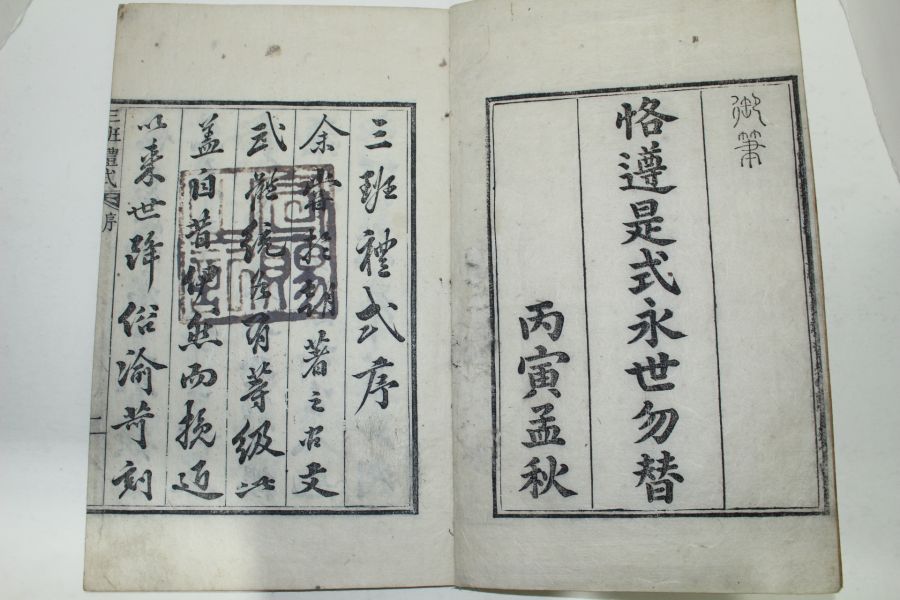 御筆
恪遵是式永世勿替
丙寅孟秋
三班禮式序
余嘗於朝著之右文
武統有等級此
盖自昔然而挽近
以來世降俗渝苛刻
三班禮式 序 一